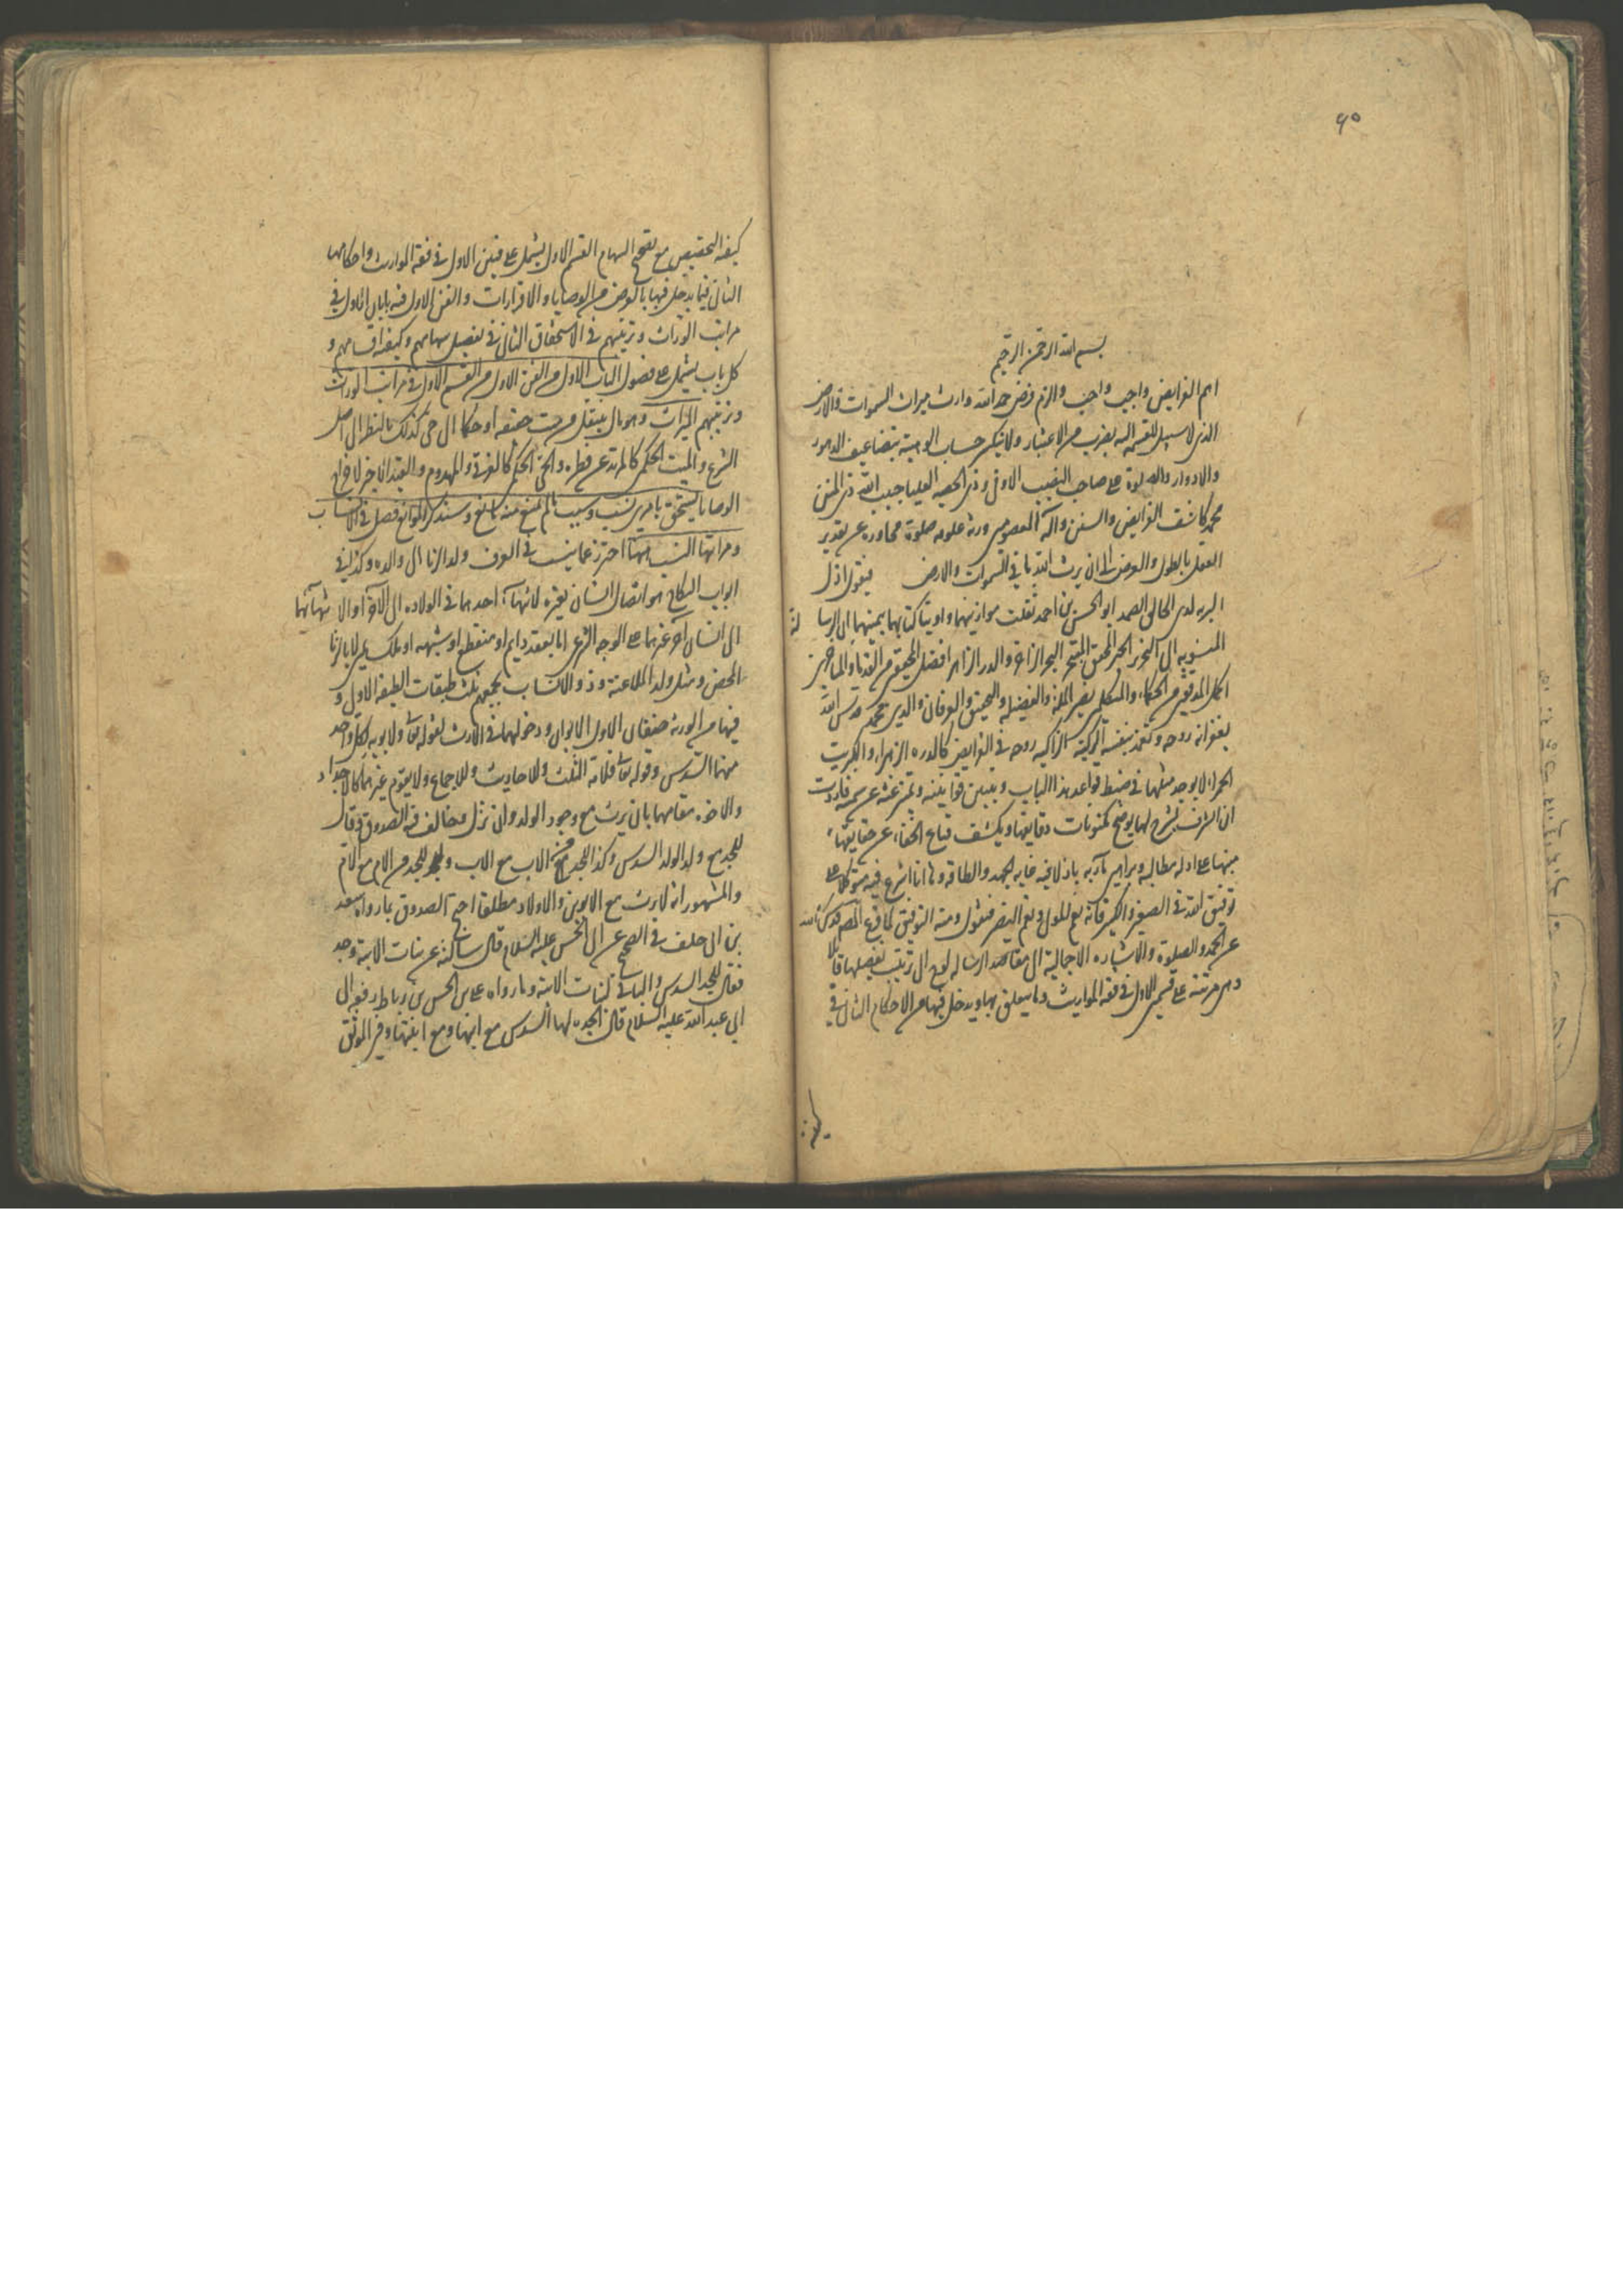 ٩٥
بسم الله الرحمن الرحيم
اهم الفرايض واجب واجب والزم فرض حمد الله وارث ميراث السموات والارض
الذى لا سبيل للقسمه اليه بضرب من الاعتبار ولا ينكسر حساب الوهيته بتضاعيف الدهور
والادوار والصلوة على صاحب النصيب الاوفى وذى الحصه العليا حبيب الله ذى المنن
محمد كاشف الفرايض والسنن وآله المعصومين ورثة علومه صلوة مجاوزه عن تقدير
العمل بالطول والعرض الى ان يرث الله ما فى السموات والارض فيقول اذل
البريه لدى الخالق الصمد ابو الحسن بن احمد ثقلت موازينهما واوتيا كتابهما بيمينهما ان الرسالة
المنسوبه الى النحرير الحبر المحقق المتبحر البحر الزاخر والدر الزاهر افضل المحققين من القدما والمتاخرين
اكمل المدققين من الحكماء والمتكلمين نصير الملة والفضيله والتحقيق والعرفان والدين محمد قدس الله
بغفرانه روحه فى الفرايض كالدره الزهراء والكبريت
الحمراء لا يوجد مثلها فى ضبط قواعد هذا الباب وتبيين قوانينه وتميز غثه عن سمينه فاردت
ان اشرف بشرح لها يوضح مكنونات دقايقها ويكشف قناع الخفاء عن حقايقها
منبها على ادله مطالبه وبراهين مآربه باذلا فيه غايه الجهد والطاقه وها انا اشرع فيه متوكلا على
توفيق الله فى الصغير والكبير فانه نعم المولى ونعم النصير فنقول ومنه التوفيق لما فرغ المصنف قدس الله
عن الحمد والصلوة والاشاره الاجمالية الى مقاصد الرساله الى ترتيب تفصيلها قائلا
وهى مرتبة على قسمين الاول فى فقه المواريث وما يتعلق بها ويدخل فيها من الاحكام الثانى فى
كيفية
كيفيه التحصيص مع تصحيح السهام القسم الاول يشتمل على فنين الاول فى فقه المواريث واحكامها
الثانى فيما يدخل فيها بالعرض من الوصايا والاقرارات والفن الاول فيه بابان الاول فى
مراتب الوراث وترتيبهم فى الاستحقاق الثانى فى تفصيل سهامهم وكيفية اقسامهم و
كل باب يشتمل على فصول الباب الاول من الفن الاول من القسم الاول فى مراتب الوراث
وترتيبهم الميراث وهو مال ينتقل من ميت حقيقه او حكما الى حى كذلك بالنظر الى اصل
الشرع والميت الحكمى كالمرتد عن فطره والحى الحكمى كالغرقى والمهدوم والقيد الاخير لاخراج
الوصايا يستحق بامرين نسب وسبب ما لم يمنع منه مانع وسنذكر الموانع فصل فى الانساب
ومراتبها النسب ههنا احترز عما ينسب فى العرف ولد الزنا الى والده وكذا فى
ابواب النكاح هو اتصال انسان بغيره لانتهاء احدهما فى الولاده الى الآخر او لانتهائهما
الى انسان آخر غيرهما على الوجه الشرعى اما بعقد دايم او منقطع او شبهه او ملك يمين لا بالزنا
المحض ومثل ولد الملاعنة وذو والانساب بجميعهم ثلث طبقات الطبقه الاولى و
فيها من الورثة صنفان الاول الابوان ودخولهما فى الارث لقوله تعالى ولابويه لكل واحد
منهما السدس وقوله تعالى فلامه الثلث وللاحاديث وللاجماع ولا يقوم غيرهما كالاجداد
والاخوه مقامهما بان يرث مع وجود الولد وان نزل وخالف فيه الصدوق وقال
للجد مع ولد الولد السدس وكذا للجد من الاب مع الاب وللجد من الام مع الام
والمشهور انه لا يرث مع الابوين والاولاد مطلقا احتج الصدوق بما رواه سعد
بن ابى خلف فى الصحيح عن ابى الحسن عليه السلام قال سالته عن بنات الابنة وجد
فقال للجد السدس والباقى لبنات الابنة وما رواه على بن الحسن بن رباط رفعه الى
ابى عبد الله عليه السلام قال الجده لها السدس مع ابنها ومع ابنتها وفى الموثق